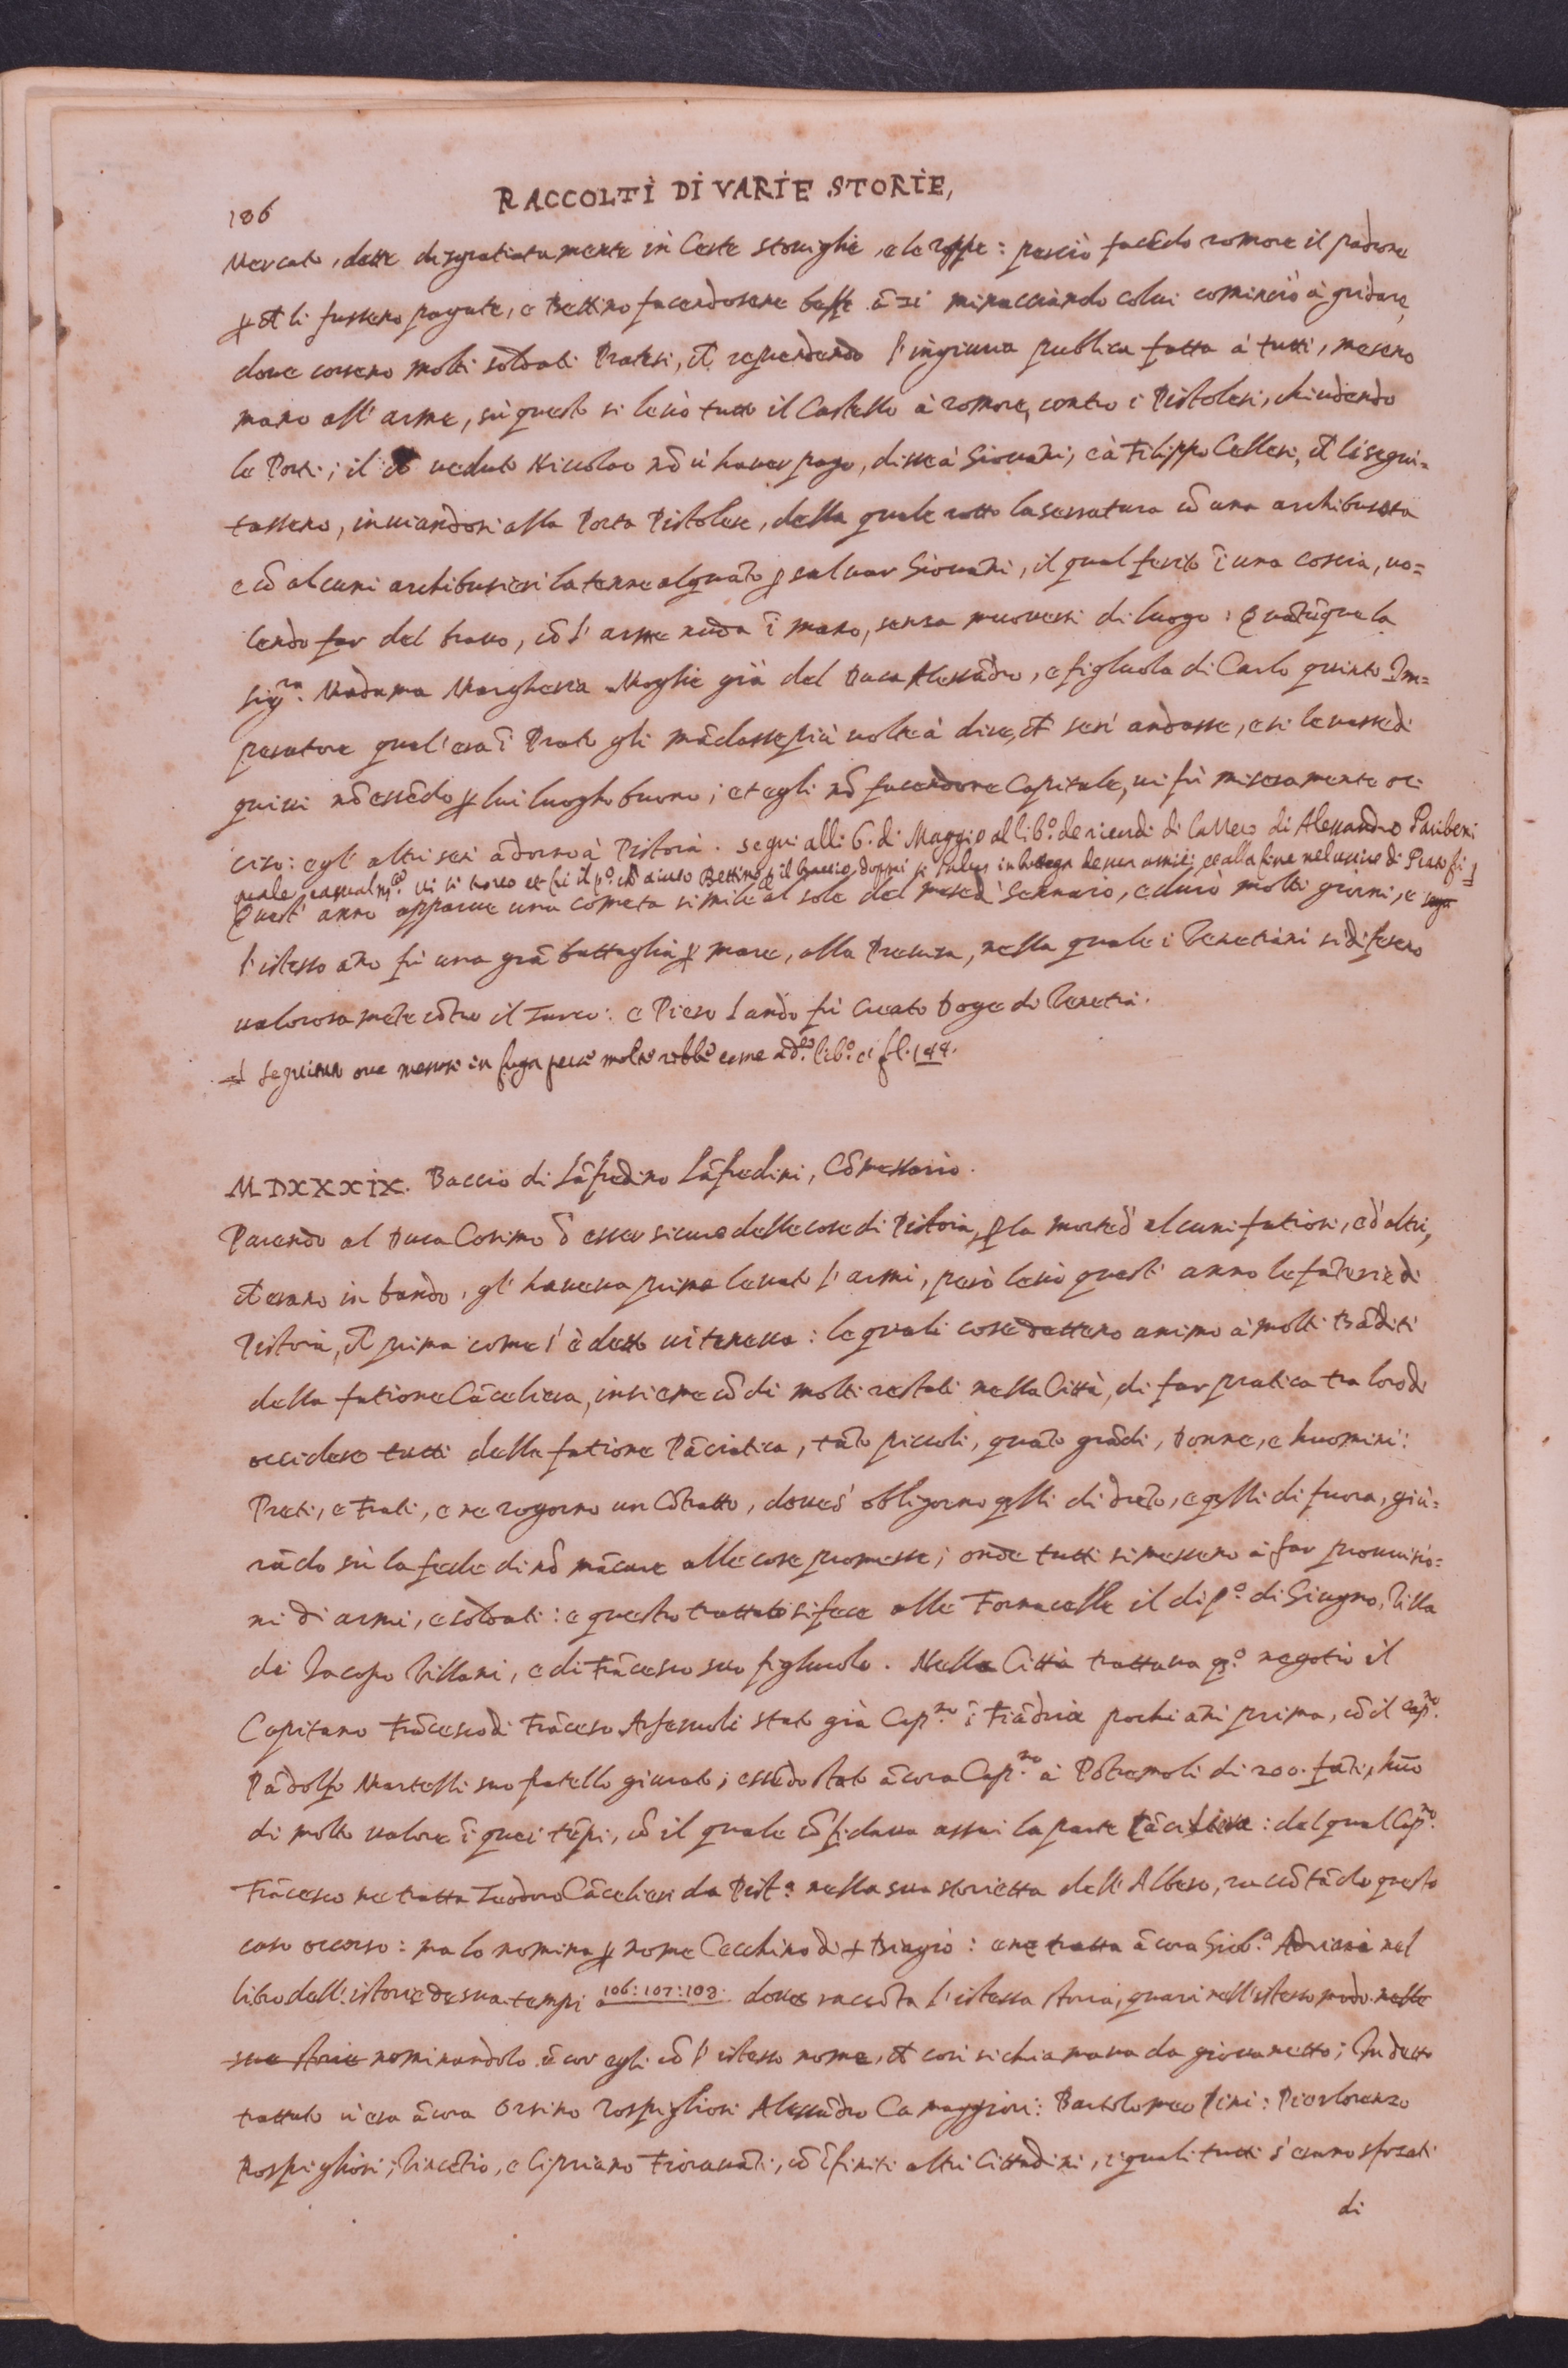 186
RACCOLTI DI VARIE STORIE,
Mercato, dette disgratiatamente in Certe stoviglie, e le roppe: perciò facēdo romore il padrone
ꝑ ch̄ li fussero pagate, e Bettino facendosene beffe ā zi minacciando colui cominciò à gridare,
dove corsero molti soldati Pratesi, ch̄ reputando l'ingiuria publica fatta à tutti, mesero
mano all'arme, sù questo si levò tutto il Castello à romore, contro i Pistolesi, chiudendo
le Porti; il ch̄ veduto Niccolao nō vi haver pago, disse à Giovāni, e à Filippo Cellesi, ch̄ li segui-
tassero, inviandosi alla Porta Pistolese, della quale rotto la serratura cō una archibusata
e cō alcuni archibusieri la tenne alquāto ꝑ salvar Giovāni, il qual ferito ī una coscia, vo=
lendo far del bravo, cō l'arme nuda ī mano, senza muoversi di luogo: Quātūque la
Sig.ra Madama Margherita Moglie già del Duca Alessādro, e figluola di Carlo quinto Im=
peratore qual'era ī Prato gli mādasse più volte à dire, ch̄ se n'andasse, e si levasse di
quivi nō essēdo ꝑ lui luogho buono; et egli nō facendone Capitale, vi fù miseramente oc
ciso: e gl'altri se n'ādorno à Pistoia. seguì alli 6. di Maggio al lib.o de ricordi di Alessandro Paribeni
Quest'anno apparve una cometa simile al sole del mese di Gennaro, e durò molti giorni, e
l'istesso āno fù una grā battaglia ꝑ mare, alla Prevesa, nella quale i Venetiani si difesero
valorosamēte cōtro il Turco: e Piero Lando fù Creato Doge di Venetia.
come a d.o lib.o a f. 144.
MDXXXIX. Baccio di Lāfredino Lāfredini, Cōmessario.
Parendo al Duca Cosimo d'esser sicuro delle cose di Pistoia, ꝑ la morte d'alcuni fatiosi, e d'altri,
ch̄ erano in bando, gl'haveva prima levato l'armi, però levò quest'anno le fāterie di
Pistoia, ch̄ prima come s'è detto vi teneva: le quali cose dettero animo à molti Bāditi
della fatione Cācelliera, insieme cō di molti restati nella Città, di far pratica tra loro di
occidere tutti della fatione Pāciatica, tāto piccoli, quāto grādi, Donne, e huomini:
Preti, e Frati, e ne rogorno un Cōtratto, dove s'obligorno q̄lli di drēto, e q̄lli di fuora, giù=
rādo sù la fede di nō mācare alle cose promesse; onde tutti si messero à far provvisio=
ni di armi, e soldati: e questo trattato si fece alle Fornacelle il dì p.o di Giugno, Villa
di Jacopo Villani, e di Frācesco suo figluolo. Nella Città trattava q.o negotio il
Capitano Frācesco di Frāceso Arfaruoli stato già Cap.no ī Fiādria pochi āni prima, cō il cap.no
Pādolfo Martelli suo fratello giurato; essēdo stato ācora Cap.no à Pōtremoli di 200. fāti, huō
di molto valore ī quei tēpi, cō il quale cōfidava assai la parte Pāciatica: del qual Cap.no
Frācesco ne tratta Teodoro Cācelieri da Pist.a nella sua storietta dell'Albero, raccōtādo questo
caso occorso: ma lo nomina ꝑ nome Cecchino di + Biagio: e ne tratta ācora Giob.a Adriani nel
libro dell'istorie de sua tempi a 106: 107: 108. dove raccōta l'istessa storia, quasi nell'istesso modo nelle
sue storie nominandolo ācor egli cō l'istesso nome, ch̄ così si chiamava da giovanetto; In detto
trattato v'era ācora Orsino Rospigliosi Alessādro Ca maggiori: Bartolomeo Pini: Pierlorenzo
Rospigliosi; Vincētio, e Cipriano Fioravāti, cō īfiniti altri Cittadini, i quali tutti s'erano sforzati
di